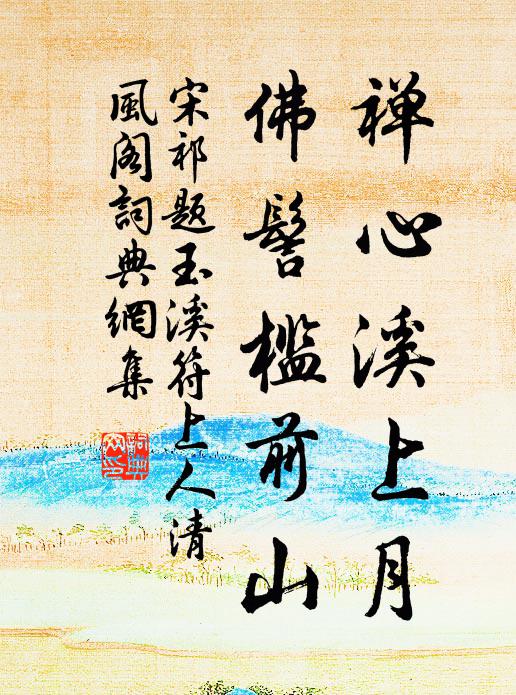 禅心溪上月
佛髻槛前山
宋祁题玉溪符上人清
風阁詞典網集
詞典
网印